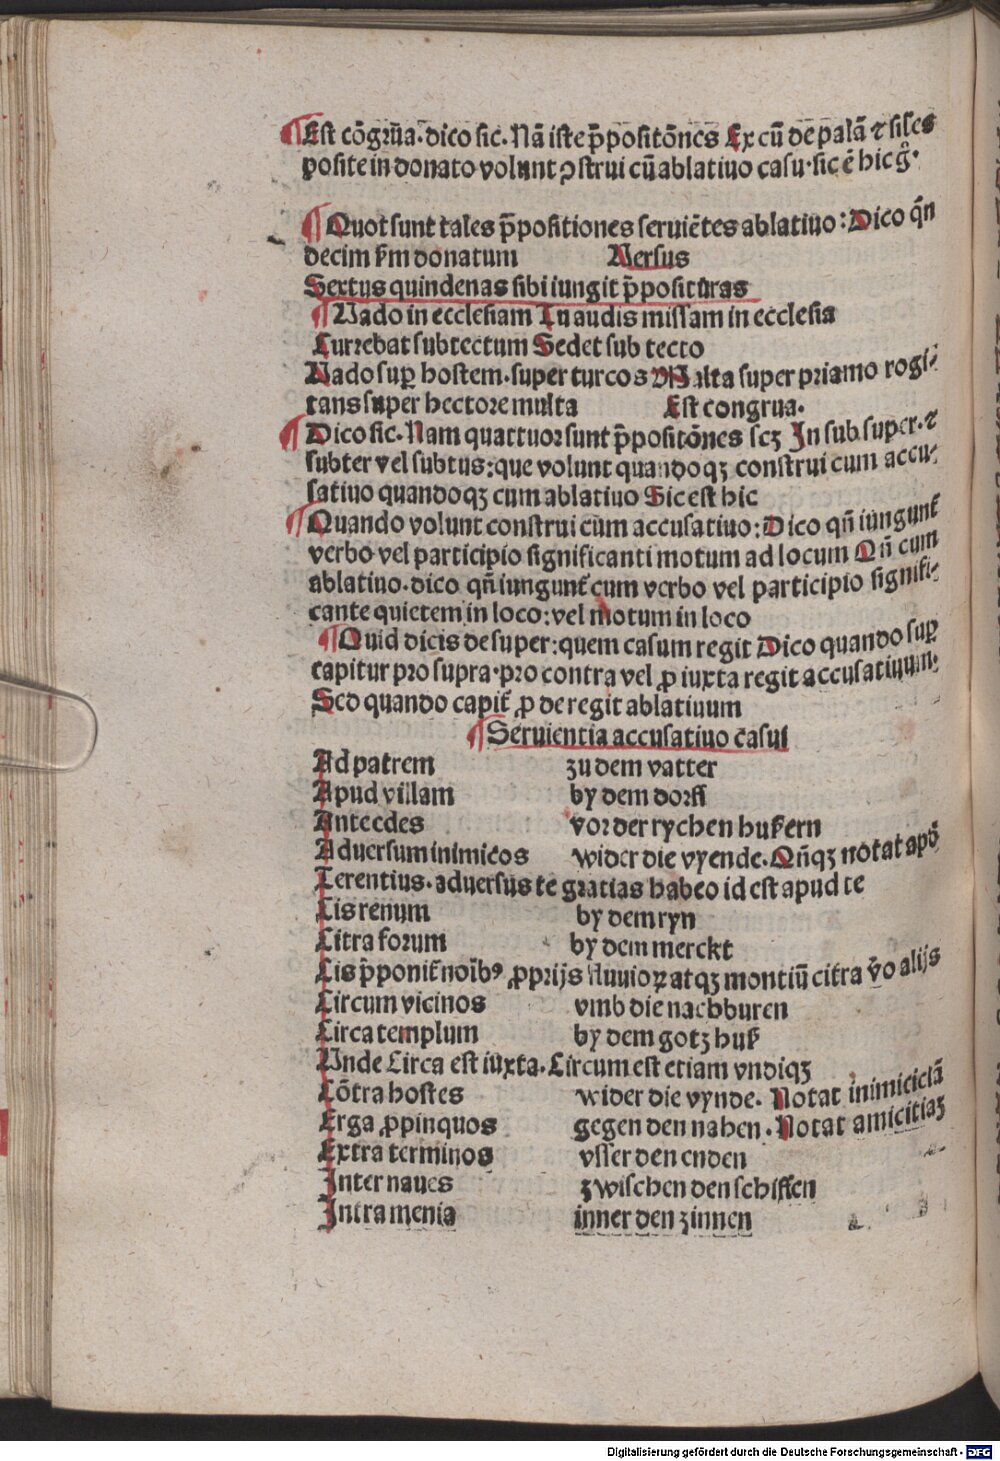 ¶Est cōgrūa. dico sic. Nā iste p̄positōnes Ex cū de palā ⁊ siłes
posite in donato volunt ꝯstrui cū ablatiuo casu. sic ē hic g̊.
¶Quot sunt tales p̄positiones seruiētes ablatiuo: Dico qn̄
decim ẜm donatum Versus
Sextus quindenas sibi iungit p̄posituras
¶Vado in ecclesiam Tu audis missam in ecclesia
Currebat subtectum Sedet sub tecto
Vado suꝑ hostem. super turcos Multa super priamo rogi⸗
tans super hectore multa Est congrua.
¶Dico sic. Nam quattuor sunt p̄positōnes scꝫ In sub super. ⁊
subter vel subtus: que volunt quandoqꝫ construi cum accu⸗
satiuo quandoqꝫ cum ablatiuo Sic est hic
¶Quando volunt construi cum accusatiuo: Dico qn̄ iungunt̄
verbo vel participio significanti motum ad locum Qn̄ cum
ablatiuo. dico qn̄ iungunt̄ cum verbo vel participio signifi⸗
cante quietem in loco: vel motum in loco
¶Quid dicis de super: quem casum regit Dico quando suꝑ
capitur pro supra. pro contra vel ꝓ iuxta regit accusatiuum.
Sed quando capit̄ ꝓ de regit ablatiuum
¶Seruientia accusatiuo casui
Ad patrem zu dem vatter
Apud villam by dem dorff
Ante edes vor der rychen huſzern
Aduersum inimicos wider die vyende. Qn̄qꝫ notat apd̓
Terentius. aduersus te gratias habeo id est apud te
Cis renum by dem ryn
Citra forum by dem merckt
Cis p̄ponit̄ noībꝰ ꝓprijs fluuioꝝ atqꝫ montiū citra v̓o alijs
Circum vicinos vmb die nachburen
Circa templum by dem gotzhuſz
Vnde Circa est iuxta. Circum est etiam vndiqꝫ
Cōtra hostes wider die vynde. Notat inimiciciā
Erga ꝓpinquos gegen den nahen. Notat amicitiaꝫ
Extra terminos vsser den enden
Inter naues zwischen den schiffen
Intra menia inner den zinnen
Digitalisierung gefördert durch die Deutsche Forschungsgemeinschaft - DFG